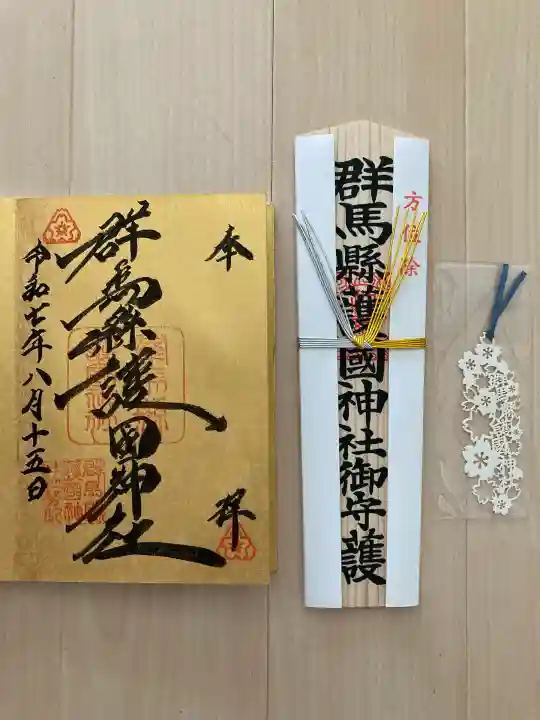 奉拝
群馬縣護国神社
令和七年八月十五日
方位除
群馬縣護國神社御守護